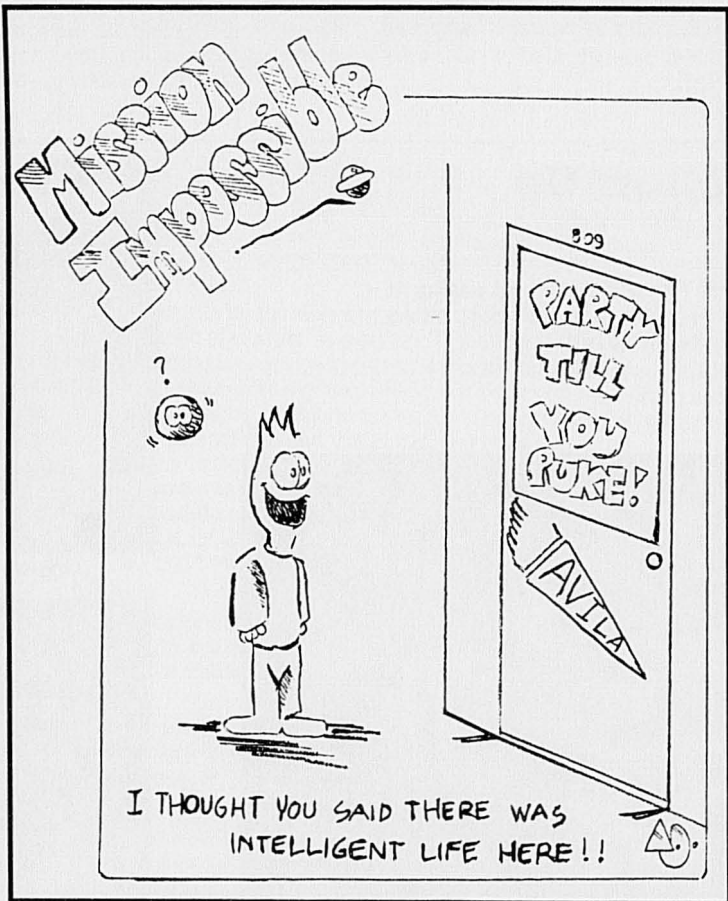 Mission
Impossible
?
809
PARTY
TILL
YOU
PUKE!
AVILA
I THOUGHT YOU SAID THERE WAS
INTELLIGENT LIFE HERE!!